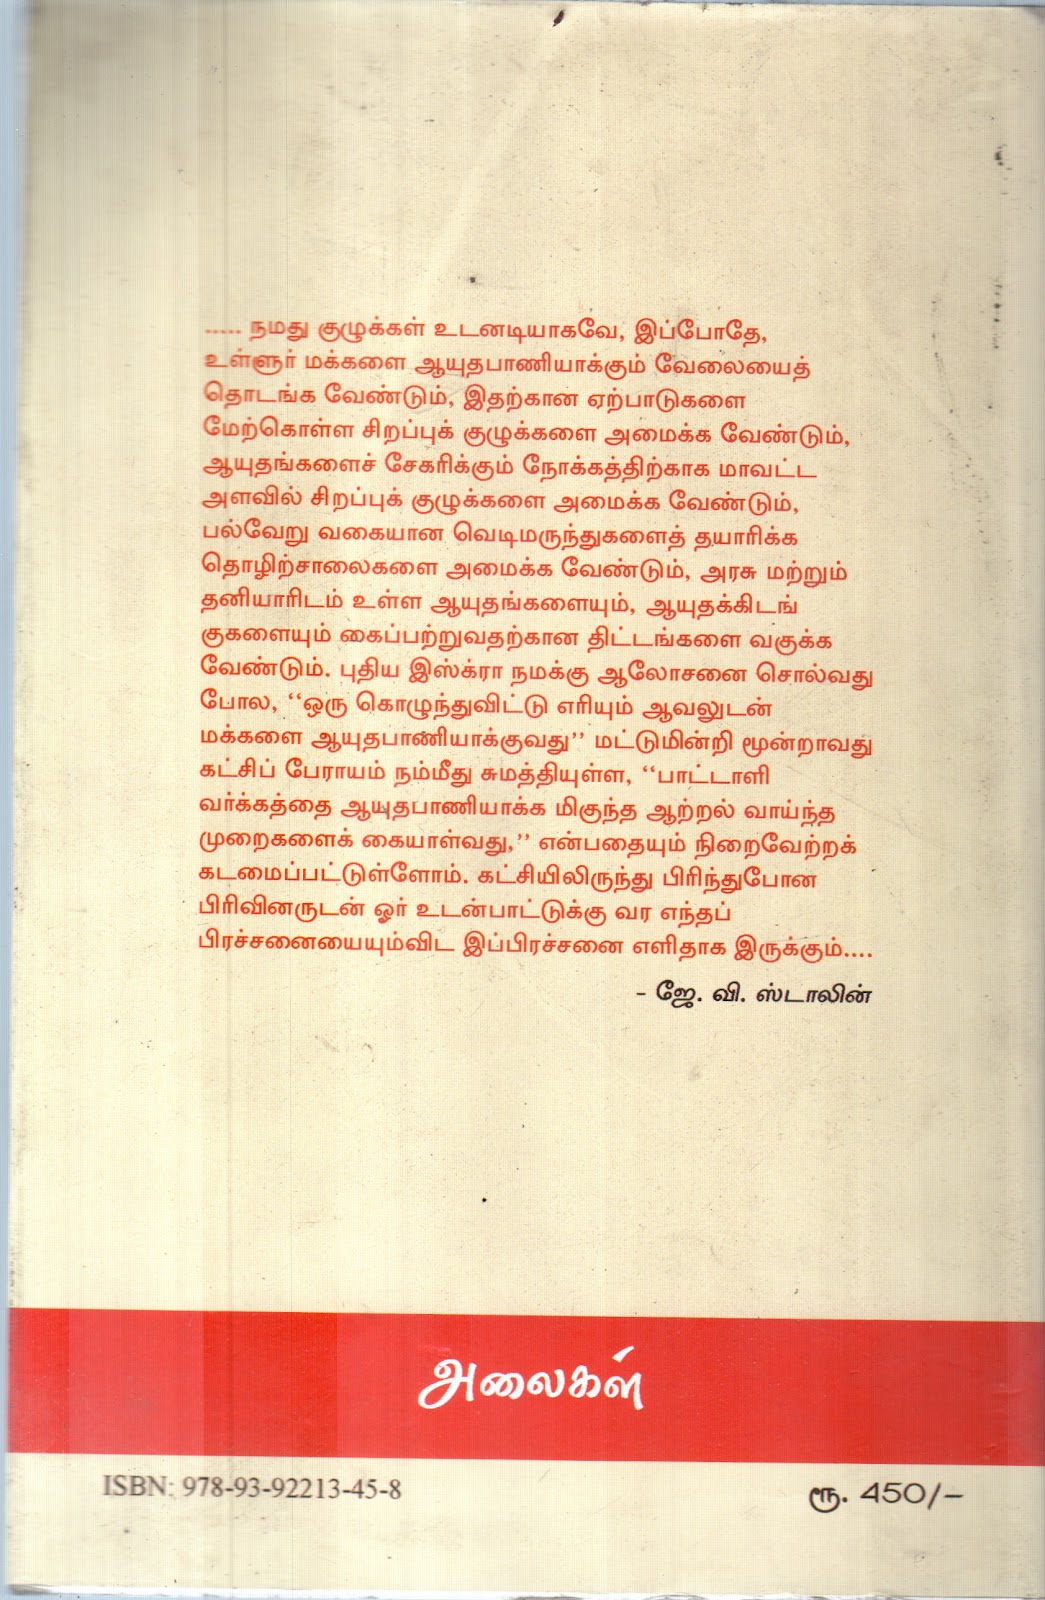 ..... நமது குழுக்கள் உடனடியாகவே, இப்போதே,
உள்ளூர் மக்களை ஆயுதபாணியாக்கும் வேலையைத்
தொடங்க வேண்டும், இதற்கான ஏற்பாடுகளை
மேற்கொள்ள சிறப்புக் குழுக்களை அமைக்க வேண்டும்,
ஆயுதங்களைச் சேகரிக்கும் நோக்கத்திற்காக மாவட்ட
அளவில் சிறப்புக் குழுக்களை அமைக்க வேண்டும்,
பல்வேறு வகையான வெடிமருந்துகளைத் தயாரிக்க
தொழிற்சாலைகளை அமைக்க வேண்டும், அரசு மற்றும்
தனியாரிடம் உள்ள ஆயுதங்களையும், ஆயுதக்கிடங்
குகளையும் கைப்பற்றுவதற்கான திட்டங்களை வகுக்க
வேண்டும். புதிய இஸ்க்ரா நமக்கு ஆலோசனை சொல்வது
போல, ‘‘ஒரு கொழுந்துவிட்டு எரியும் ஆவலுடன்
மக்களை ஆயுதபாணியாக்குவது’’ மட்டுமின்றி மூன்றாவது
கட்சிப் பேராயம் நம்மீது சுமத்தியுள்ள, ‘‘பாட்டாளி
வர்க்கத்தை ஆயுதபாணியாக்க மிகுந்த ஆற்றல் வாய்ந்த
முறைகளைக் கையாள்வது,’’ என்பதையும் நிறைவேற்றக்
கடமைப்பட்டுள்ளோம். கட்சியிலிருந்து பிரிந்துபோன
பிரிவினருடன் ஓர் உடன்பாட்டுக்கு வர எந்தப்
பிரச்சனையையும்விட இப்பிரச்சனை எளிதாக இருக்கும்....
- ஜே. வி. ஸ்டாலின்
அலைகள்
ISBN: 978-93-92213-45-8
ரூ. 450/-